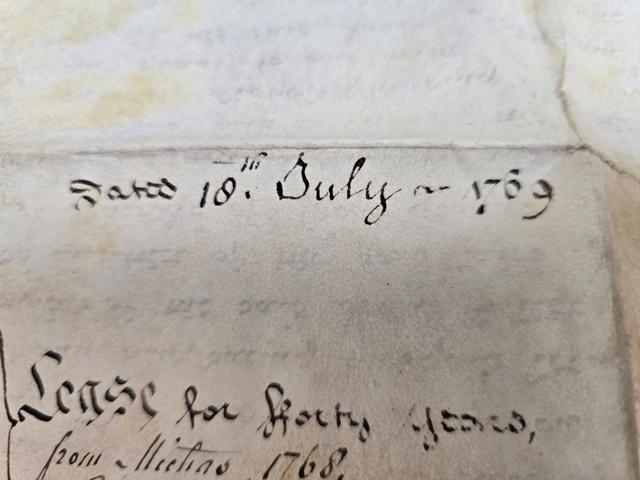 Dated 18.th July ~ 1769
Lease for fforty Years,
from Michas 1768.